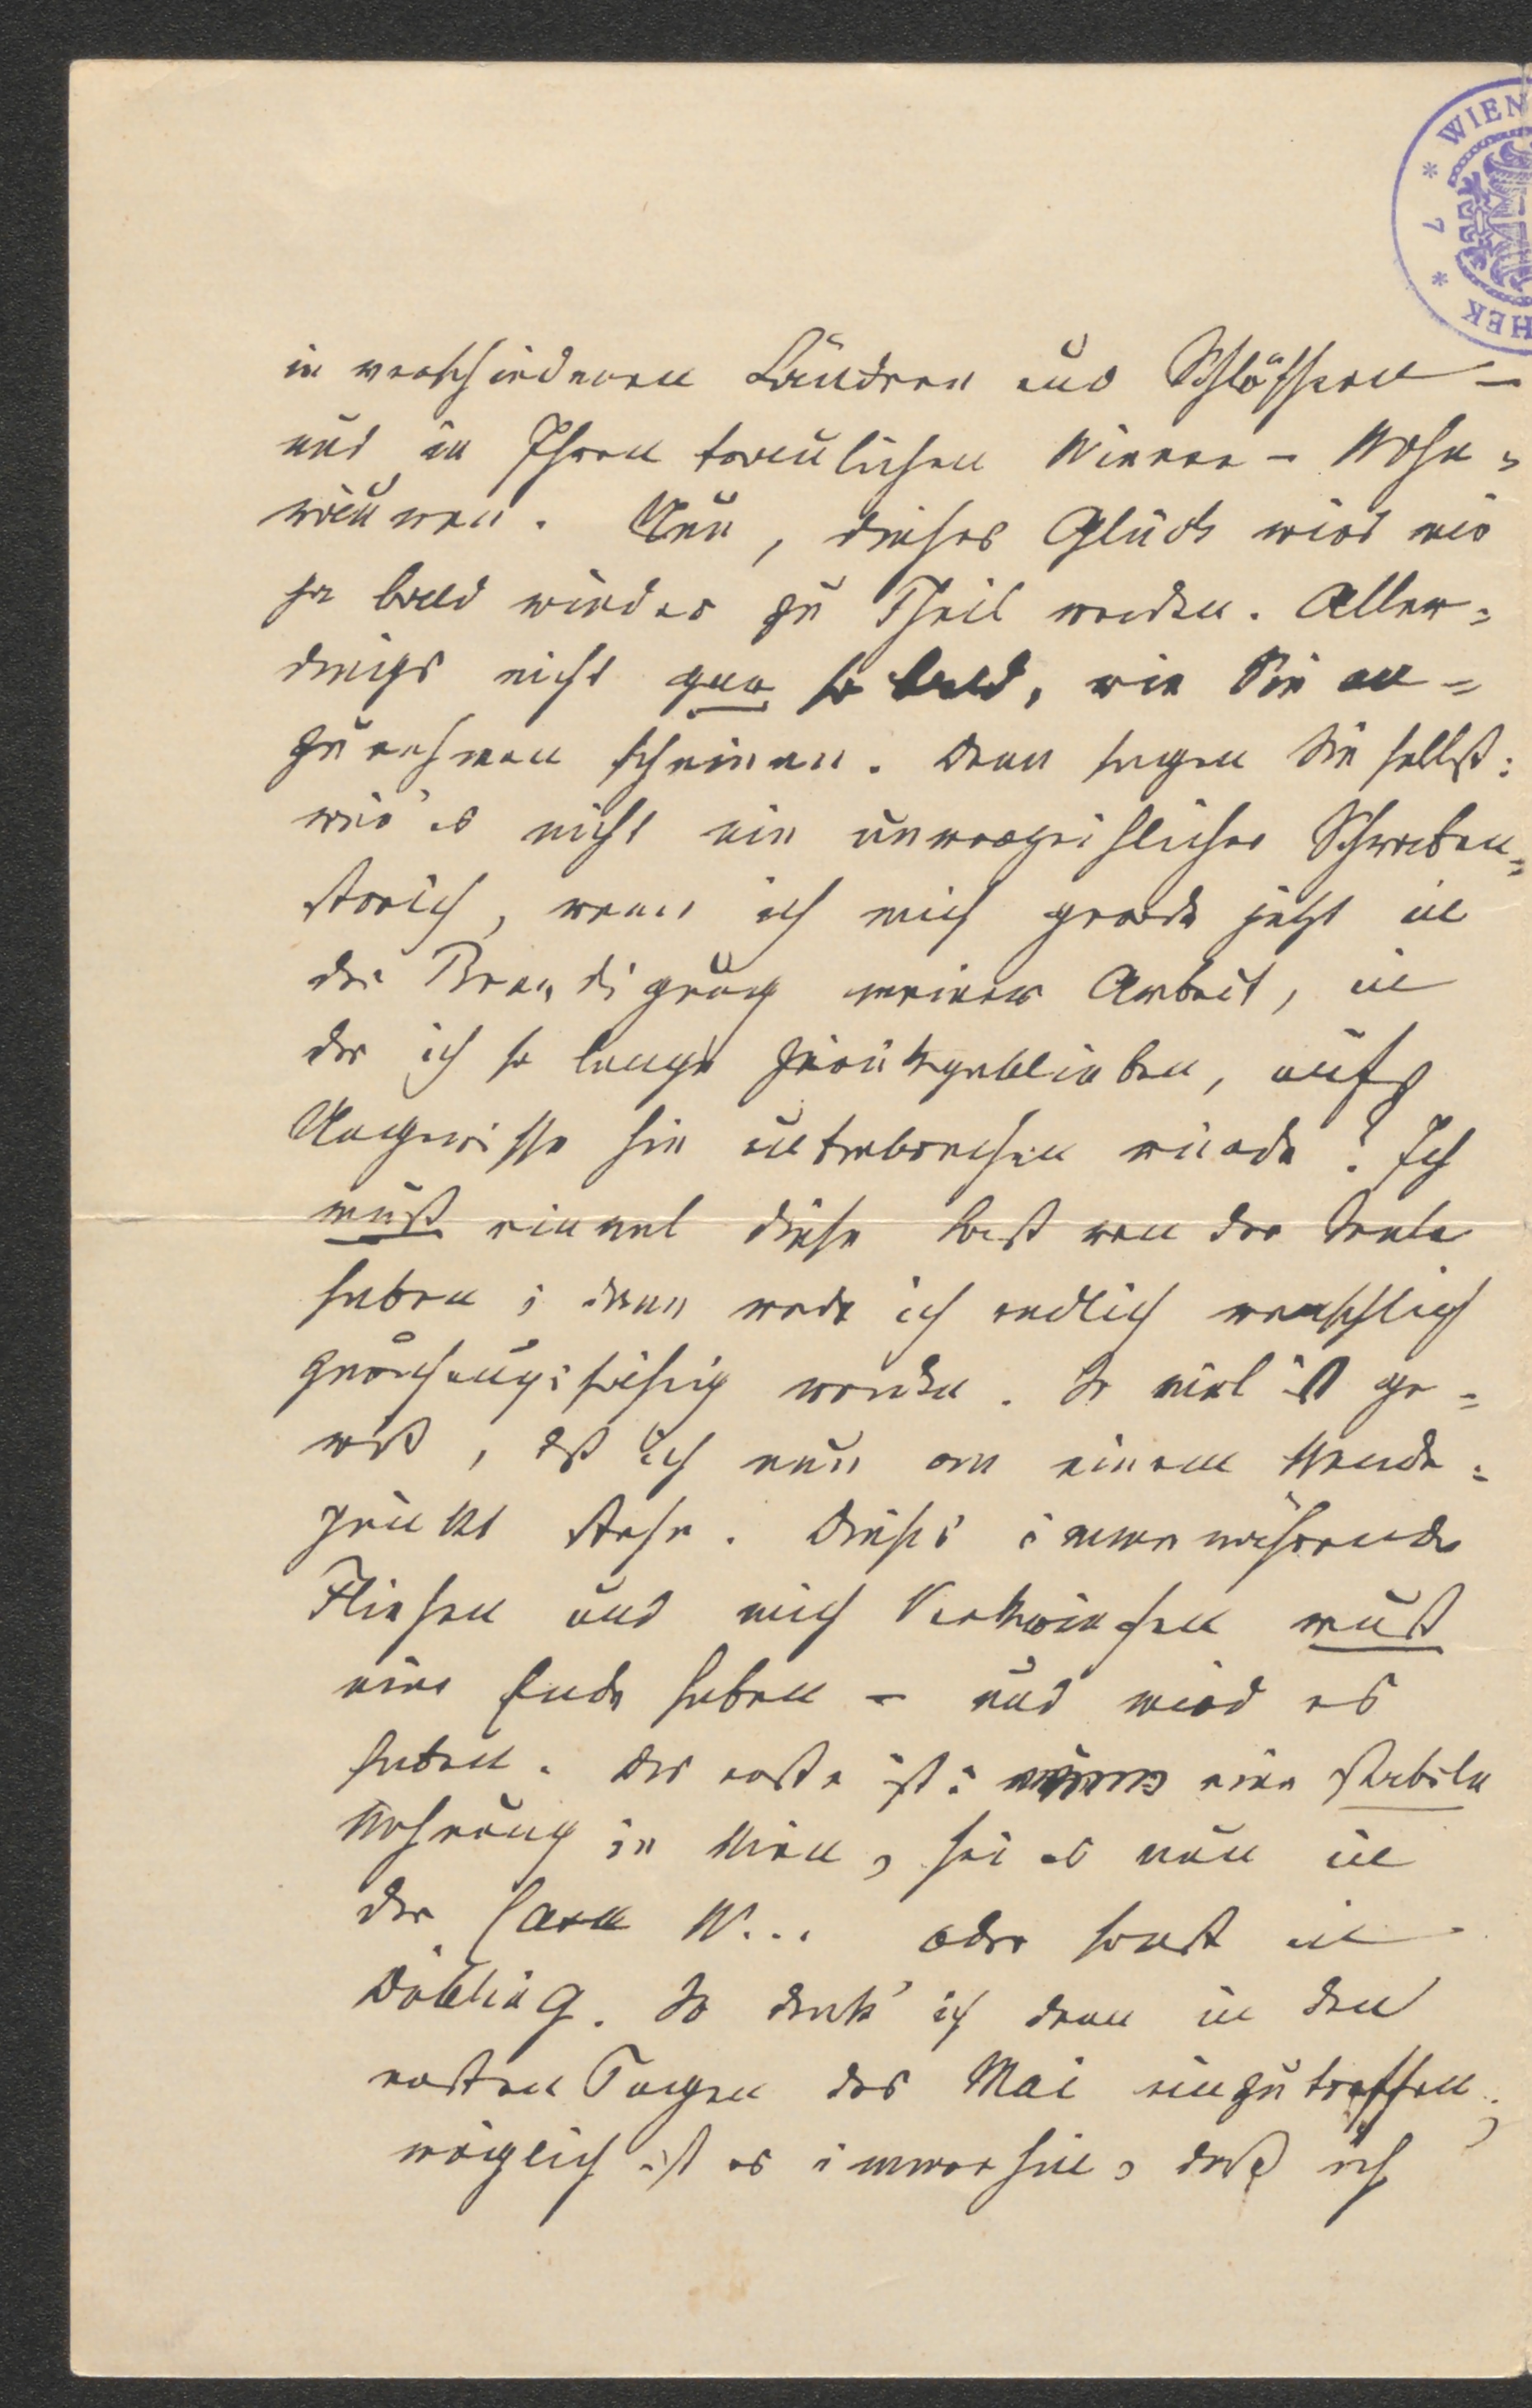 WIEN
* 7 *
HEK
in verschiedenen Ländern und Schlössern –
und in Ihren traulichen Wiener-Wohn=
räumen. Nun, dieses Glück wird mir
ja bald wieder zu Theil werden. Aller=
dings nicht gar so bald, wie Sie an=
zunehmen scheinen. Denn sagen Sie selbst:
wär' es nicht ein unvergeßlicher Schwaben=
streich, wenn ich mich gerade jetzt in
der Beendigung meiner Arbeit, in
der ich so lange zurückgeblieben, aufs
Ungewisse hin unterbrechen würde? Ich
muß einmal diese Last von der Seele
haben; dann werde ich endlich menschlich
zurechnungsfähig werden. So viel ist ge=
wiß, daß ich nun an einem Wende=
punkt stehe. Dieses immerwährende
Fliehen und mich Verkriechen muß
ein Ende haben – und wird es
haben. Das erste ist: eine stabile
Wohnung in Wien, sei es nun in
der Casa W... oder sonst in
Döbling. So denk' ich denn in den
ersten Tagen des Mai einzutreffen;
möglich ist es immerhin, daß ich